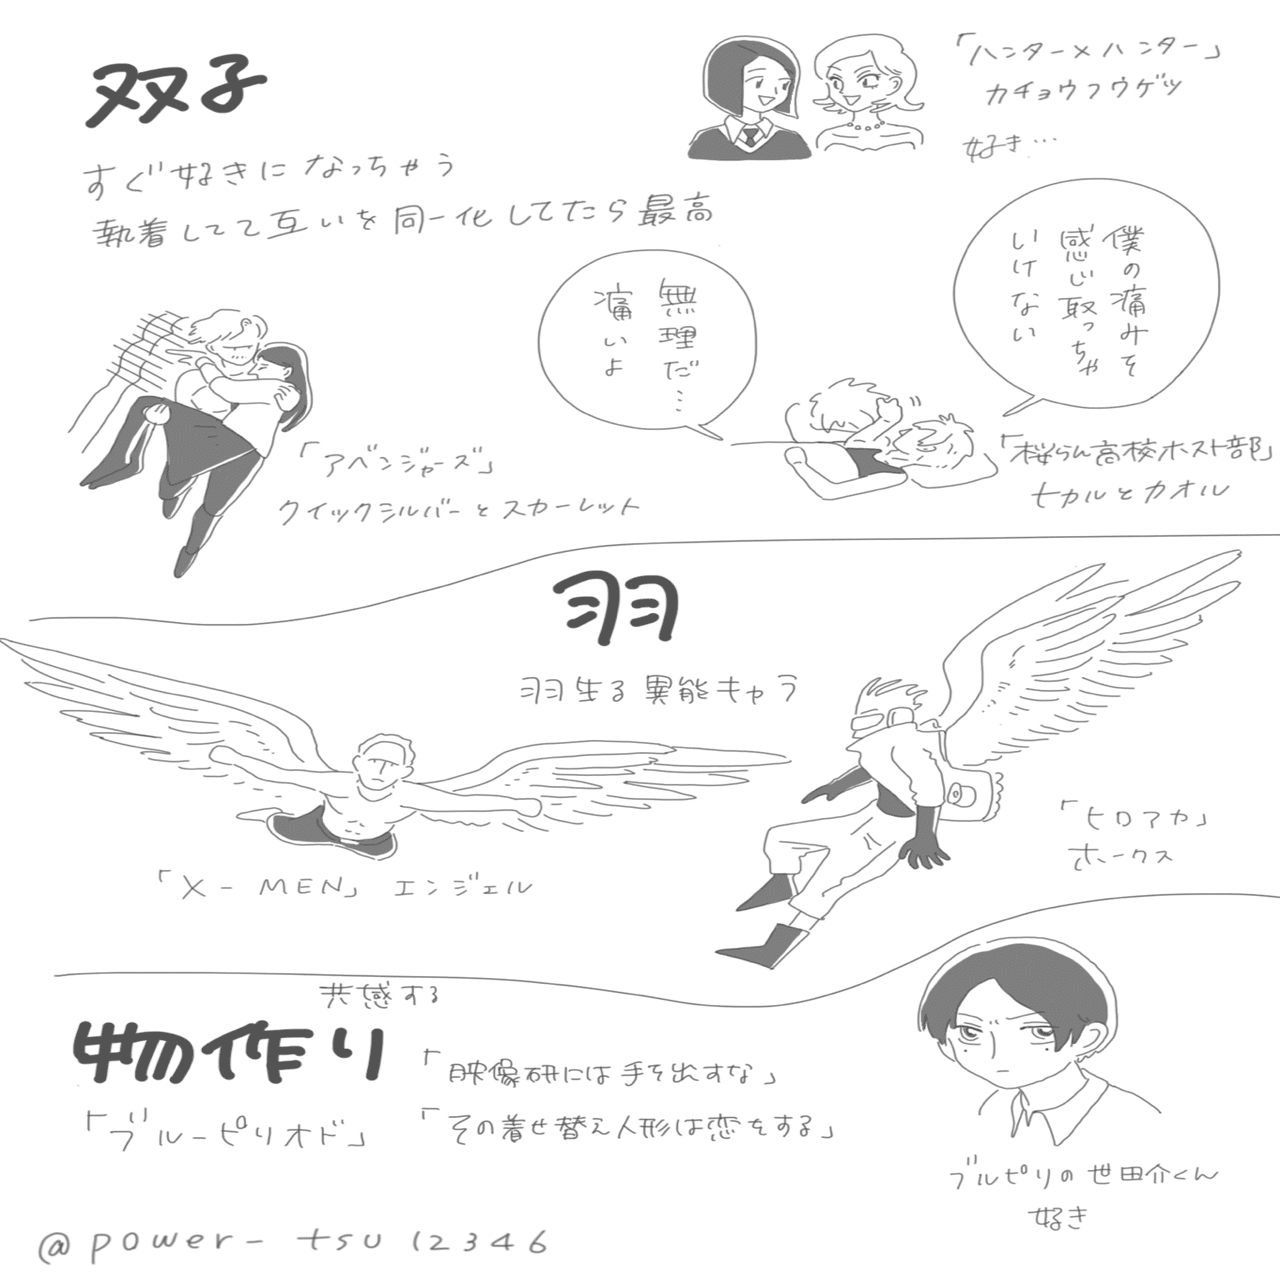 双子
すぐ好きになっちゃう
執着してて互いを同一化してたら最高
「ハンター×ハンター」
カチョウフウゲツ
好き…
僕の痛みを
感じ取っちゃ
いけない
無理だ…
痛いよ
「アベンジャーズ」
クイックシルバーとスカーレット
「桜らん高校ホスト部」
ヒカルとカオル
羽
羽生る異能キャラ
「X-MEN」エンジェル
「ヒロアカ」
ホークス
共感する
物作り
「映像研には手を出すな」
「ブルーピリオド」
「その着せ替え人形は恋をする」
ブルピリの世田介くん
好き
@power-tsu12346